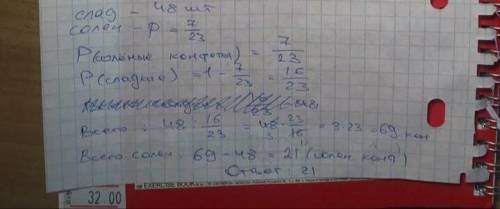 слад - 48 шт
солен - P = 7/23
P(солёные конфеты) = 7/23
P(сладкие) = 1 - 7/23 = 16/23
Всего : 48 : 16/23 = 48 · 23/16 = 3·23 = 69 кон
Всего солен : 69 - 48 = 21 (солен. конф)
Ответ : 21
EXERCISE BOOK
32.00